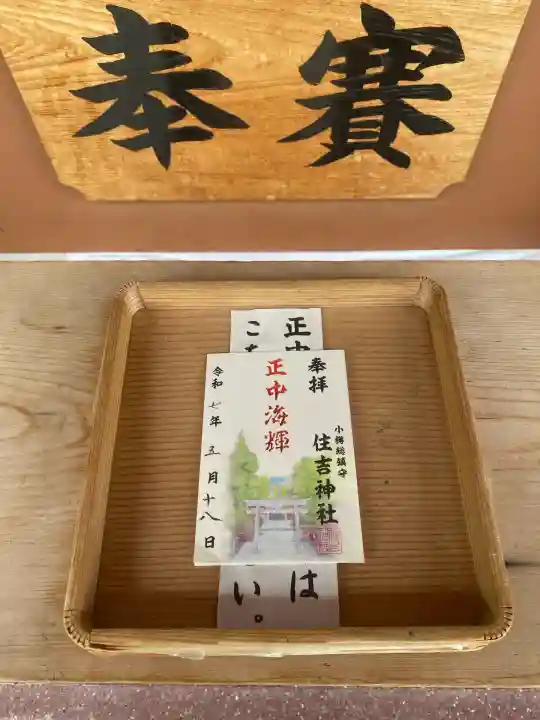 奉賽
奉拝
小樽総鎮守
住吉神社
正中海輝
令和七年五月十八日
正中
は
こ
い。